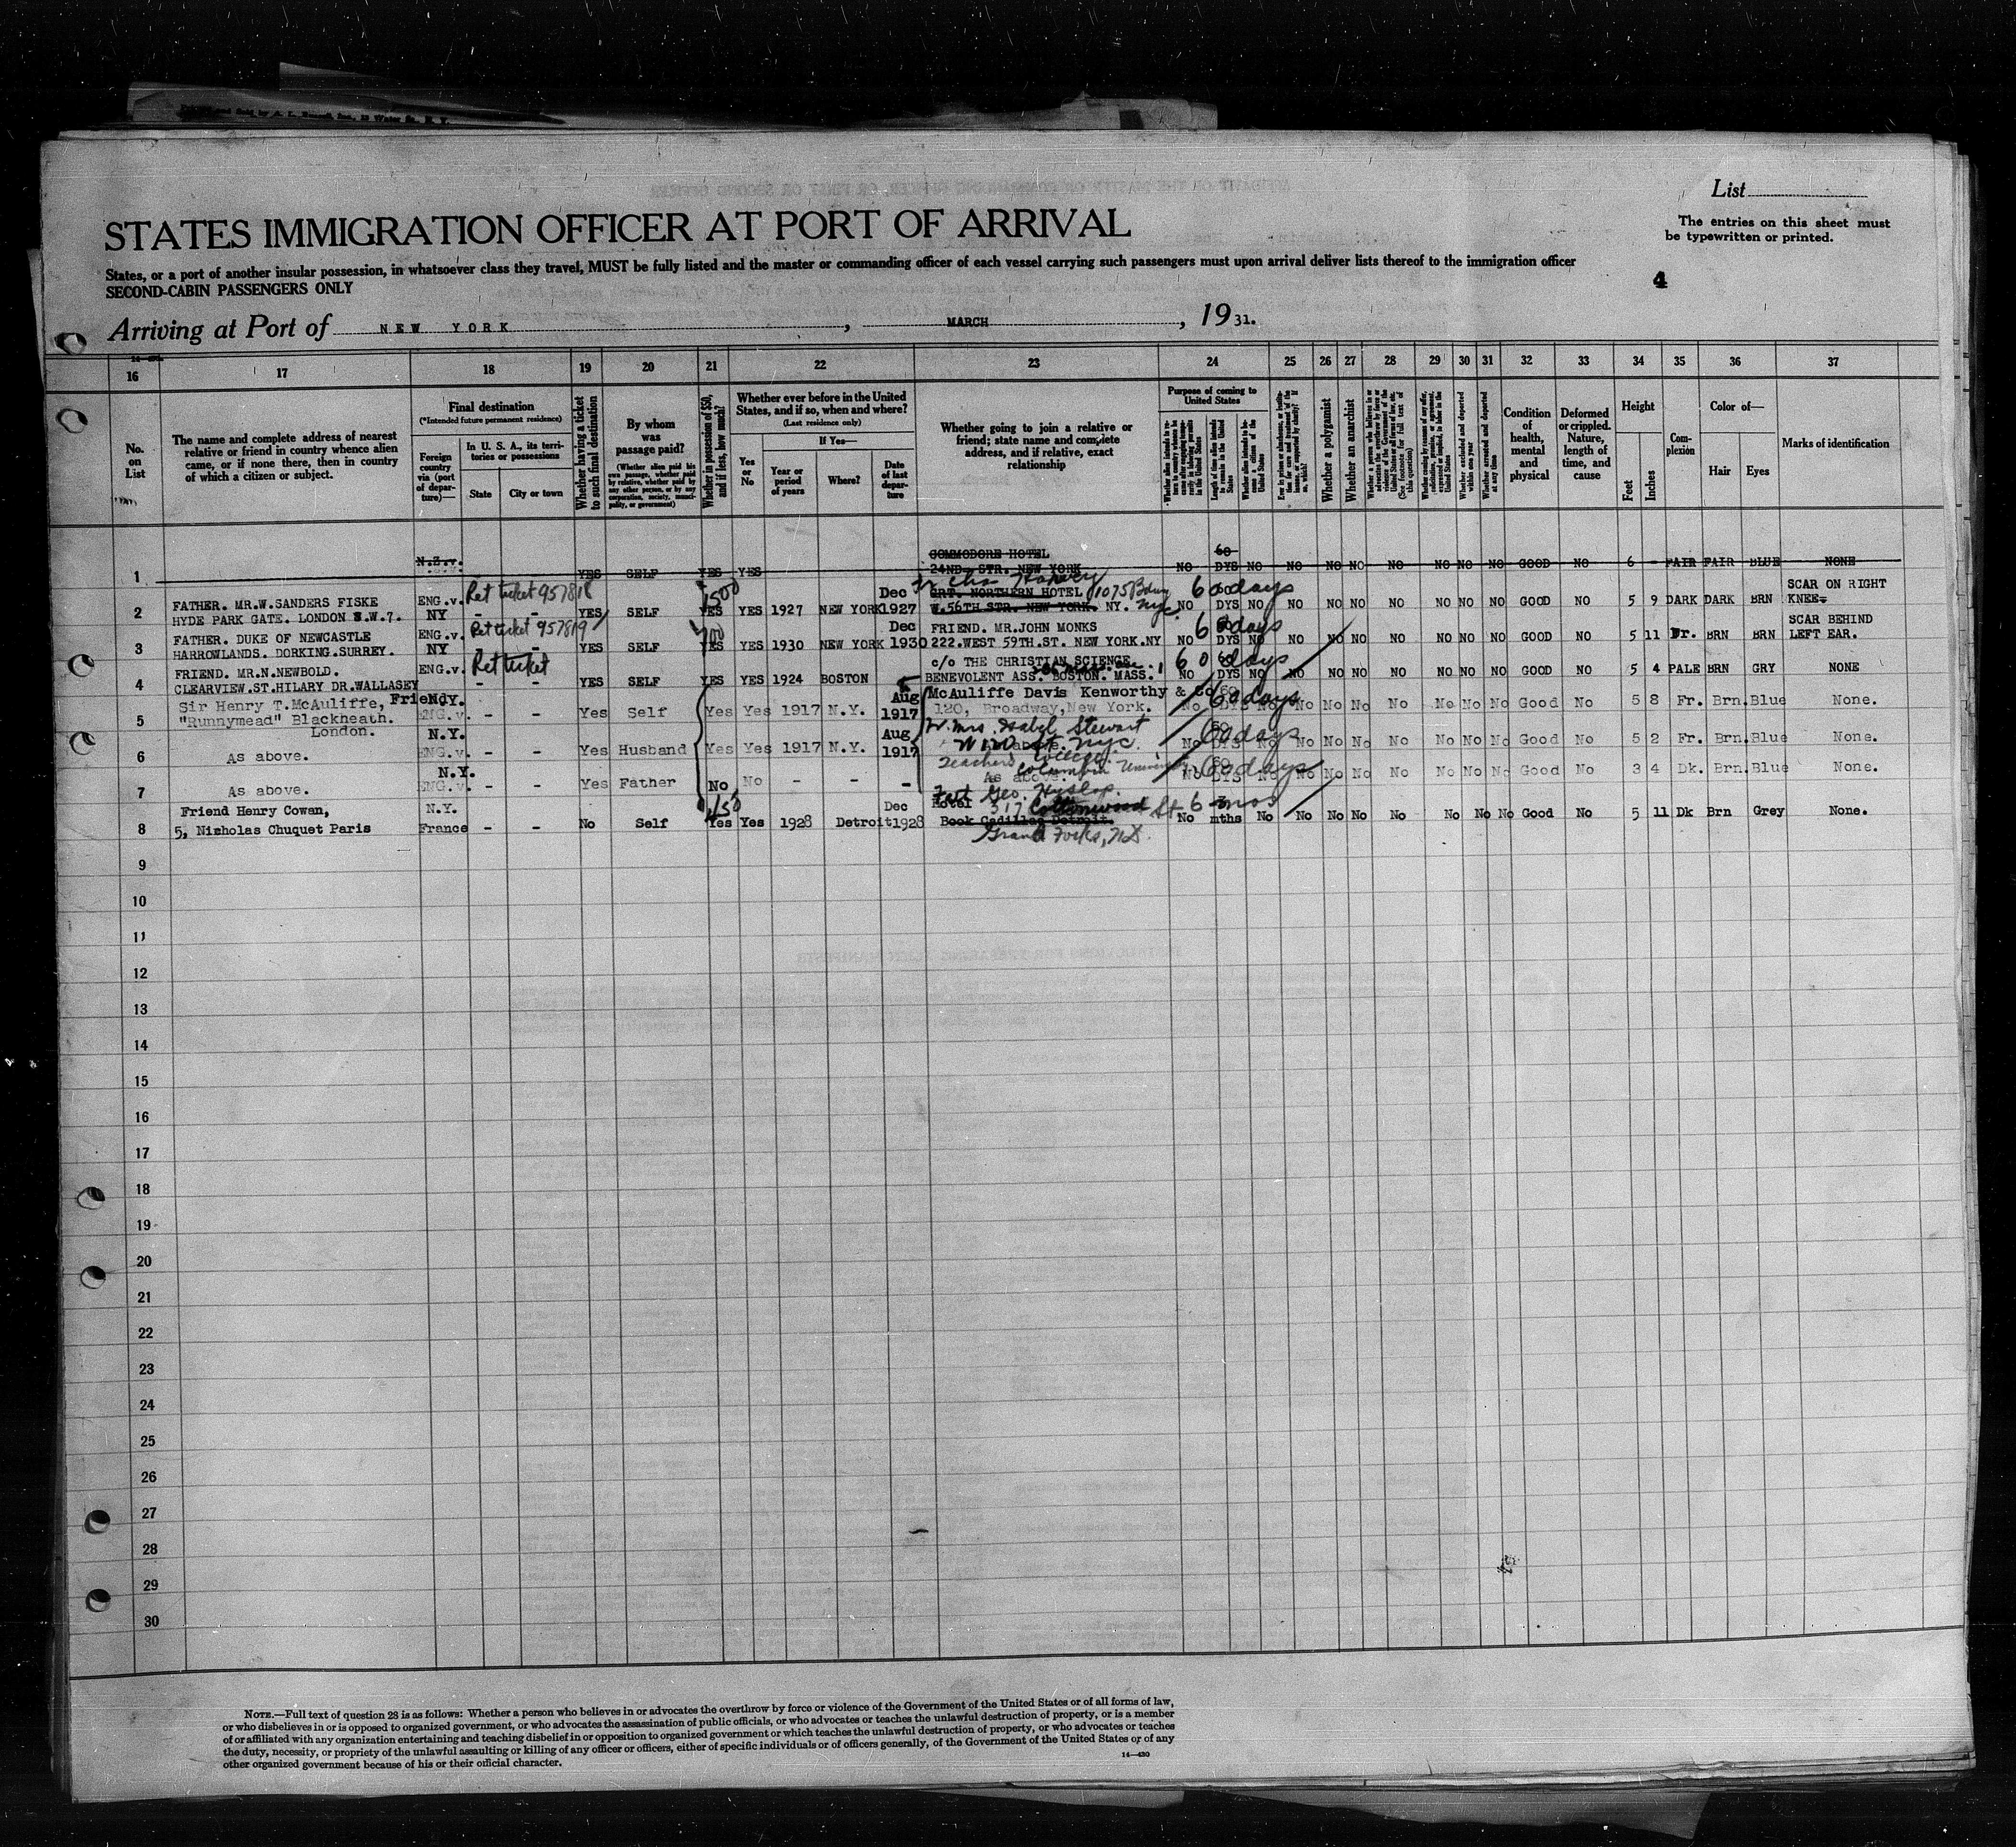 List
STATES IMMIGRATION OFFICER AT PORT OF ARRIVAL
The entries on this sheet must
be typewritten or printed.
States, or a port of another insular possession, in whatsoever class they travel, MUST be fully listed and the master or commanding officer of each vessel carrying such passengers must upon arrival deliver lists thereof to the immigration officer
SECOND-CABIN PASSENGERS ONLY
4
Arriving at Port of NEW YORK, MARCH, 1931.
16 17 18 19 20 21 22 23 24 25 26 27 28 29 30 31 32 33 34 35 36 37
No. on List
The name and complete address of nearest
relative or friend in country whence alien
came, or if none there, then in country
of which a citizen or subject.
Final destination
(*Intended future permanent residence)
Foreign country via (port of departure)—
In U. S. A., its territories or possessions
State
City or town
Whether having a ticket to such final destination
By whom was passage paid?
(Whether alien paid his own passage, whether paid by relative, whether paid by any other person, or by any corporation, society, municipality, or government)
Whether in possession of $50, and if less, how much?
Whether ever before in the United
States, and if so, when and where?
(Last residence only)
Yes or No
If Yes—
Year or period of years
Where?
Date of last departure
Whether going to join a relative or
friend; state name and complete
address, and if relative, exact
relationship
Purpose of coming to United States
Length of time alien intends to remain in the United States
Whether alien intends to become a citizen of the United States
Whether a polygamist
Whether an anarchist
Whether excluded and deported within one year
Whether arrested and deported at any time
Condition of health, mental and physical
Deformed or crippled. Nature, length of time, and cause
Height
Feet
Inches
Complexion
Color of—
Hair
Eyes
Marks of identification
1 N.Z.v. YES SELF YES YES COMMODORE HOTEL 24ND. STR. NEW YORK NO 60 DYS NO NO NO NO NO NO NO NO GOOD NO 6 - FAIR FAIR BLUE NONE
2 FATHER. MR.W.SANDERS FISKE
HYDE PARK GATE. LONDON S.W.7. ENG.v. NY Ret ticket 957818 - - YES SELF 1500 YES YES 1927 NEW YORK Dec 1927 Harvey 1075 Bdwy NYC GRT. NORTHERN HOTEL W.56TH STR. NEW YORK. NY. NO 60 days DYS NO NO NO NO NO NO NO NO GOOD NO 5 9 DARK DARK BRN SCAR ON RIGHT KNEE.
3 FATHER. DUKE OF NEWCASTLE
HARROWLANDS. DORKING.SURREY. ENG.v. NY Ret ticket 957819 - YES SELF YES YES 1930 NEW YORK Dec 1930 FRIEND. MR.JOHN MONKS 222.WEST 59TH.ST. NEW YORK.NY NO 60 days DYS NO NO NO NO NO NO NO NO GOOD NO 5 11 Fr. BRN BRN SCAR BEHIND LEFT EAR.
4 FRIEND. MR.N.NEWBOLD.
CLEARVIEW.ST.HILARY DR.WALLASEY ENG.v. Ret ticket - - YES SELF YES YES 1924 BOSTON c/o THE CHRISTIAN SCIENCE BENEVOLENT ASS. BOSTON. MASS. NO 60 days DYS NO NO NO NO NO NO NO NO GOOD NO 5 4 PALE BRN GRY NONE
5 Sir Henry T.McAuliffe, Friend
"Runnymead" Blackheath.
London. N.Y. ENG.v. - - Yes Self Yes Yes 1917 N.Y. Aug 1917 McAuliffe Davis Kenworthy & Co 120, Broadway,New York. No 60 days No No No No No No No No Good No 5 8 Fr. Brn. Blue None.
6 As above. N.Y. ENG.v. - - Yes Husband Yes Yes 1917 N.Y. Aug 1917 Mrs. Isabel Stewart W 120 St. NYC. Teachers College Columbia University No 60 days DYS No No No No No No No No Good No 5 2 Fr. Brn. Blue None.
7 As above. N.Y. ENG.v. - - Yes Father No No - - - As above. No 60 days DYS No No No No No No No No Good No 3 4 Dk. Brn. Blue None.
8 Friend Henry Cowan,
5, Nicholas Chuquet Paris N.Y. France - - No Self 150 Yes Yes 1928 Detroit Dec 1928 Geo. Hyslop. 317 Cottonwood St Hotel Book Cadillac Detroit. Grand Forks, ND. No 6 mos mths No No No No No No No No Good No 5 11 Dk Brn Grey None.
9
10
11
12
13
14
15
16
17
18
19
20
21
22
23
24
25
26
27
28
29
30
NOTE.—Full text of question 28 is as follows: Whether a person who believes in or advocates the overthrow by force or violence of the Government of the United States or of all forms of law,
or who disbelieves in or is opposed to organized government, or who advocates the assassination of public officials, or who advocates or teaches the unlawful destruction of property, or is a member
of or affiliated with any organization entertaining and teaching disbelief in or opposition to organized government or which teaches the unlawful destruction of property, or who advocates or teaches
the duty, necessity, or propriety of the unlawful assaulting or killing of any officer or officers, either of specific individuals or of officers generally, of the Government of the United States or of any
other organized government because of his or their official character.
14—430